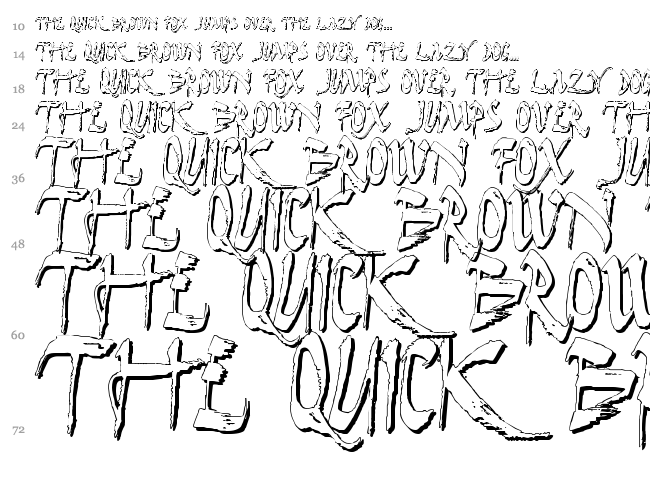 10 THE QUICK BROWN FOX JUMPS OVER, THE LAZY DOG...
14 THE QUICK BROWN FOX JUMPS OVER, THE LAZY DOG...
18 THE QUICK BROWN FOX JUMPS OVER, THE LAZY DOG
24 THE QUICK BROWN FOX JUMPS OVER TH
36 THE QUICK BROWN FOX JU
48 THE QUICK BROWN
60 THE QUICK BROU
72 THE QUICK B